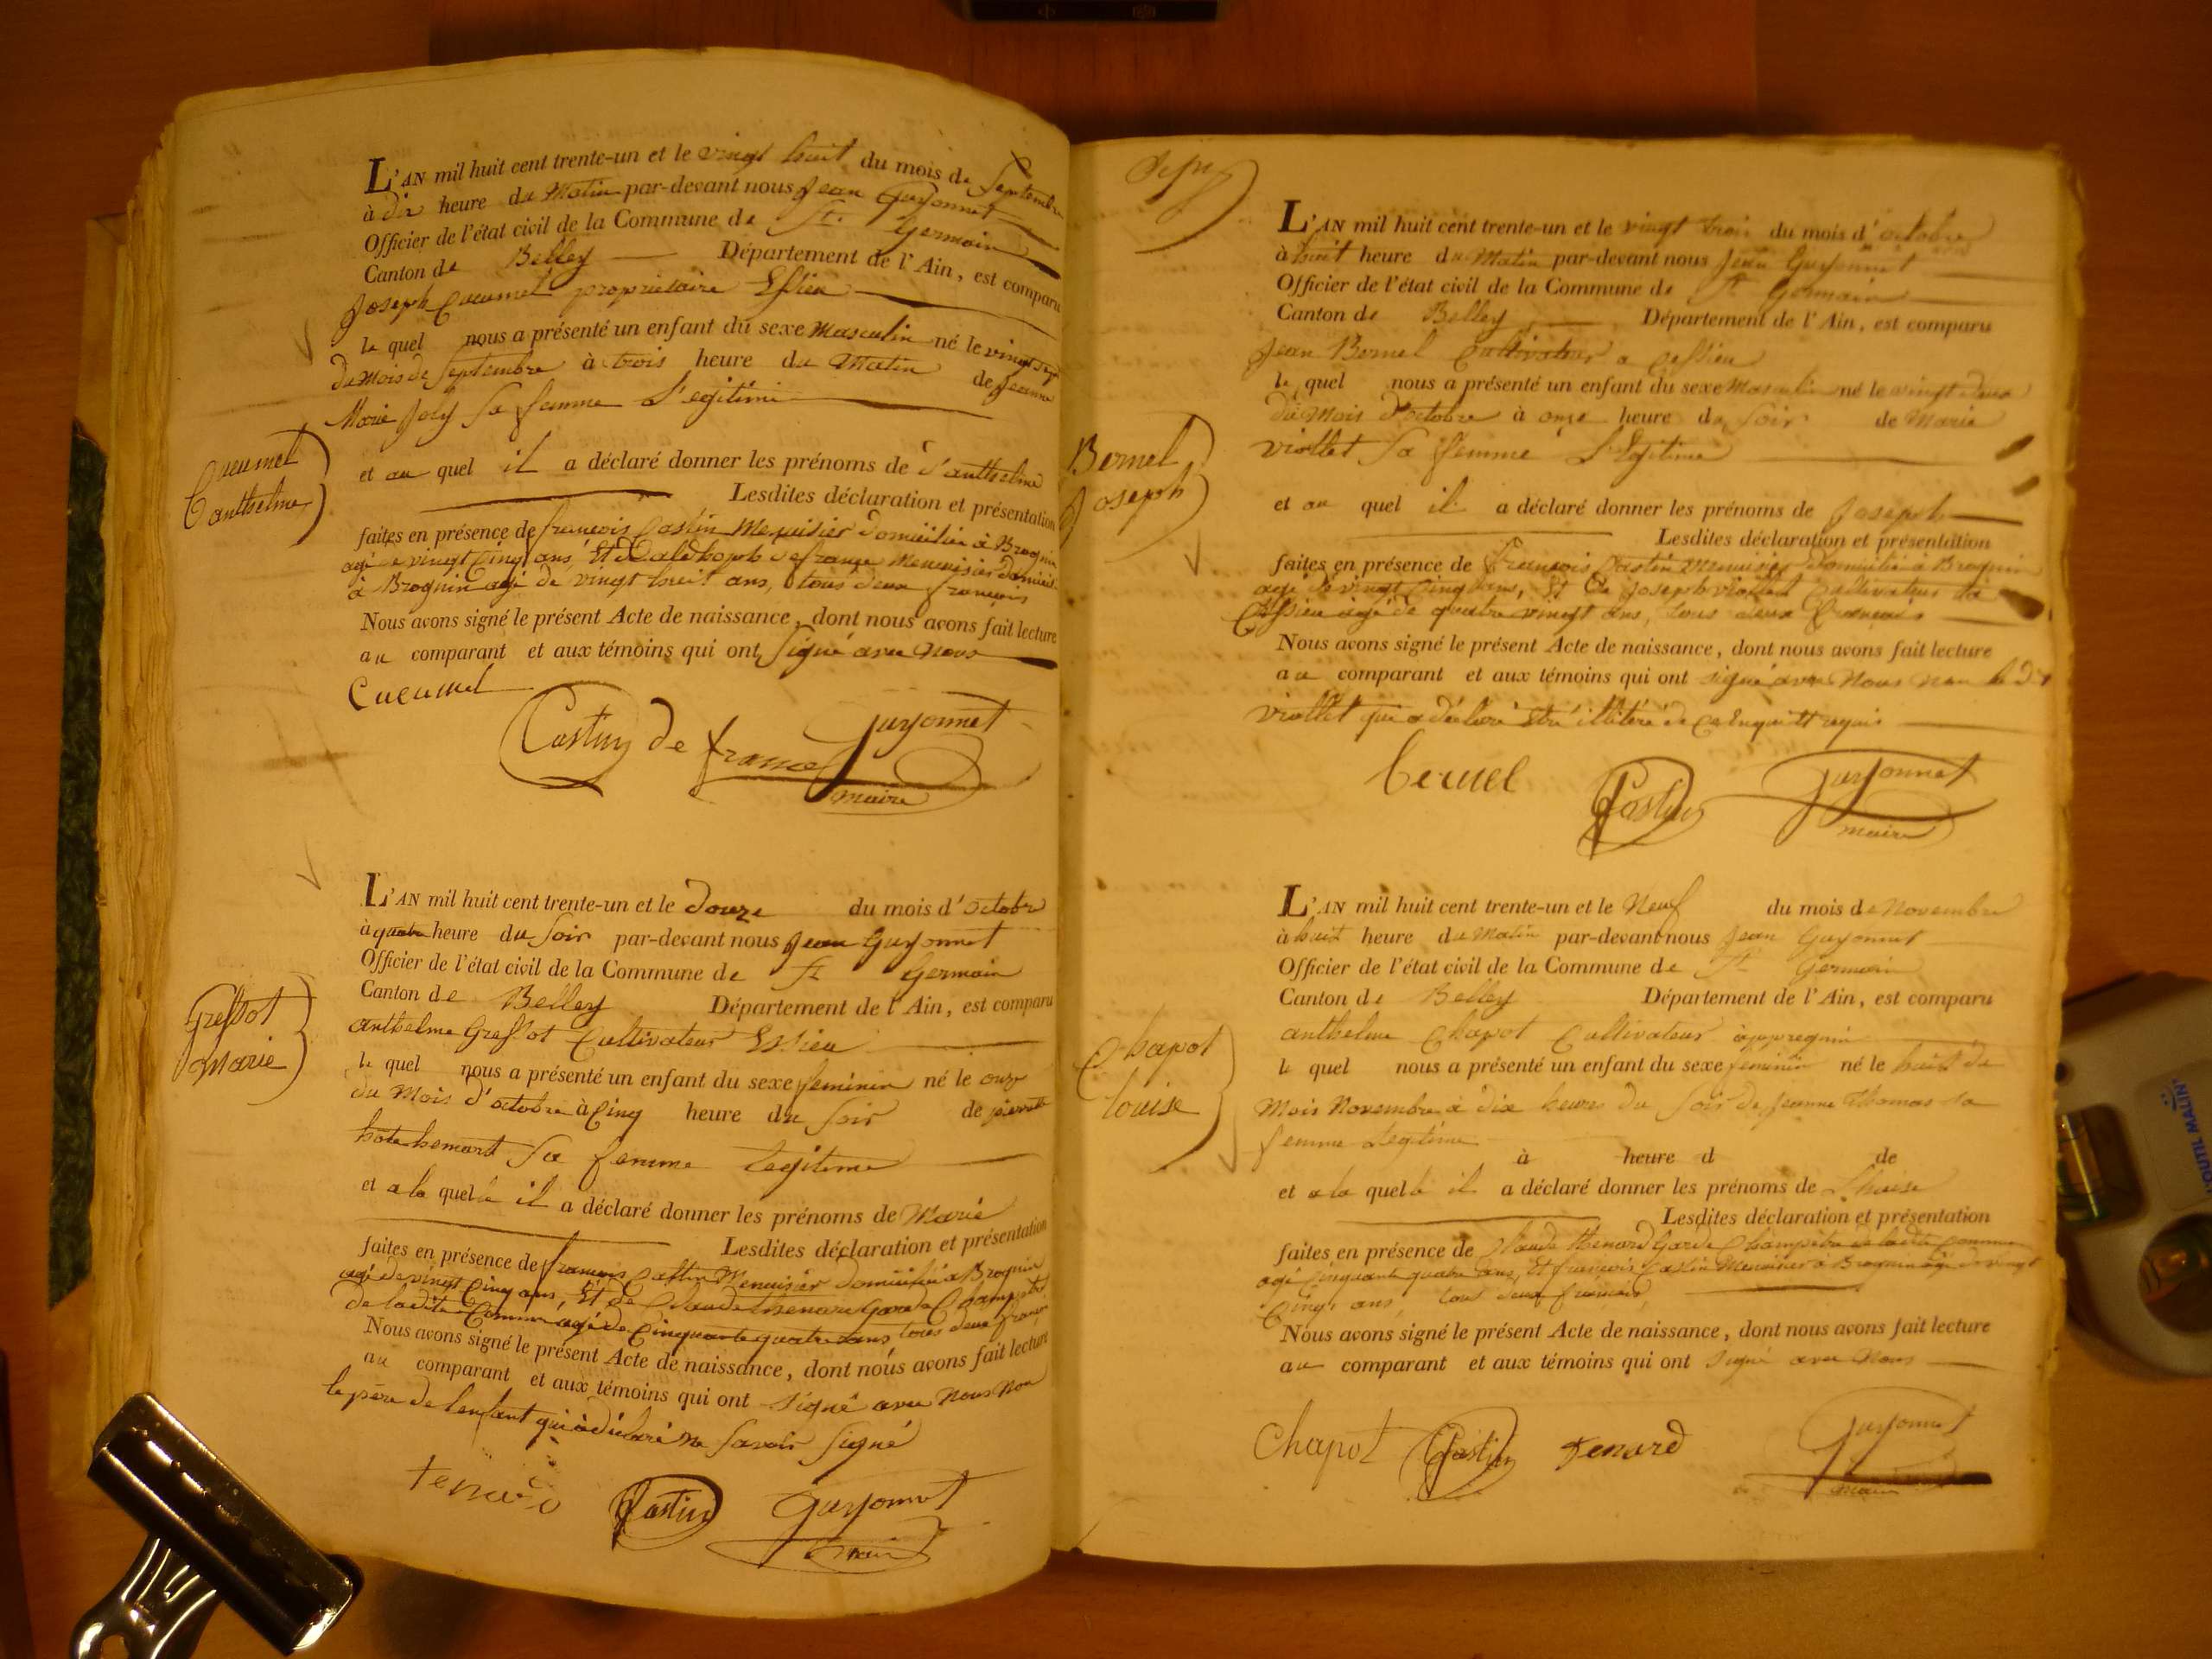 L'AN mil huit cent trente-un et le vingt huit du mois de Septembre
à dix heure du Matin par-devant nous Jean Guyonnet
Officier de l'état civil de la Commune de St. Germain
Canton de Belley Département de l'Ain, est comparu
Joseph Cucumel proprietaire Essieu
le quel nous a présenté un enfant du sexe Masculin né le vingt sept
du Mois de Septembre à trois heure du Matin de Jeanne
Marie Joly Sa femme Legitime
Cucumel
anthelme
et au quel il a déclaré donner les prénoms de d'anthelme
Lesdites déclaration et présentation
faites en présence de francois Castin Menuisier domicilié à Brognin
agé de vingt Cinq ans, Et de defrance Menuisier domicil.
à Brognin agé de vingt huit ans, tous deux francois
Nous avons signé le présent Acte de naissance, dont nous avons fait lecture
au comparant et aux témoins qui ont Signé avec Nous
Cucumel
Castin de france Guyonnet
maire
L'AN mil huit cent trente-un et le Douze du mois d'octobre
à quatre heure du Soir par-devant nous Jean Guyonnet
Officier de l'état civil de la Commune de St Germain
Canton de Belley Département de l'Ain, est comparu
anthelme Greffot Cultivateur Essieu
Greffot
Marie
le quel nous a présenté un enfant du sexe feminin né le onze
du Mois d'octobre à Cinq heure du Soir de pierrette
Sa femme legitime
et a la quelle il a déclaré donner les prénoms de Marie
Lesdites déclaration et présentation
faites en présence de francois Castin Menuisier domicilié a Brognin
agé de vingt Cinq ans, Et de Claude thenard Garde Champetre
de ladite Commune agé de Cinquante quatre ans tous deux francois
Nous avons signé le présent Acte de naissance, dont nous avons fait lecture
au comparant et aux témoins qui ont Signé avec Nous Non
le père de lenfant qui à déclaré ne Savoir Signé
tenard Castin Guyonnet
maire
L'AN mil huit cent trente-un et le vingt trois du mois d'octobre
à huit heure du Matin par-devant nous Jean Guyonnet
Officier de l'état civil de la Commune de St Germain
Canton de Belley Département de l'Ain, est comparu
Jean Bernel Cultivateur a Cessieu
le quel nous a présenté un enfant du sexe Masculin né le vingt deux
du Mois d'octobre à onze heure du Soir de Marie
viollet Sa femme Legitime
Bernel
Joseph
et au quel il a déclaré donner les prénoms de Joseph
Lesdites déclaration et présentation
faites en présence de Francois Castin Menuisier domicilié à Brognin
agé de vingt Cinq ans, Et de Joseph viollet Cultivateur
agé de quatre vingt ans, tous deux francais
Nous avons signé le présent Acte de naissance, dont nous avons fait lecture
au comparant et aux témoins qui ont signé avec Nous non le dt
viollet qui a déclaré etre illitéré de ce Enquit et requis
bernel Castin Guyonnet
maire
L'AN mil huit cent trente-un et le Neuf du mois de Novembre
à huit heure du Matin par-devant nous Jean Guyonnet
Officier de l'état civil de la Commune de St Germain
Canton de Belley Département de l'Ain, est comparu
anthelme Chapot Cultivateur à appregnin
Chapot
louise
le quel nous a présenté un enfant du sexe feminin né le huit du
Mois Novembre à dix heures du Soir de Jeanne thomas sa
femme Legitime
à heure d de
et a la quelle il a déclaré donner les prénoms de
Lesdites déclaration et présentation
faites en présence de Claude thenard Garde Champetre de ladite commune
agé Cinquante quatre ans, Et francois Castin Menuisier à Brognin agé de vingt
Cinq ans, tous deux francais
Nous avons signé le présent Acte de naissance, dont nous avons fait lecture
au comparant et aux témoins qui ont Signé avec Nous
Chapot Castin tenard Guyonnet
maire
L'OUTIL MALIN